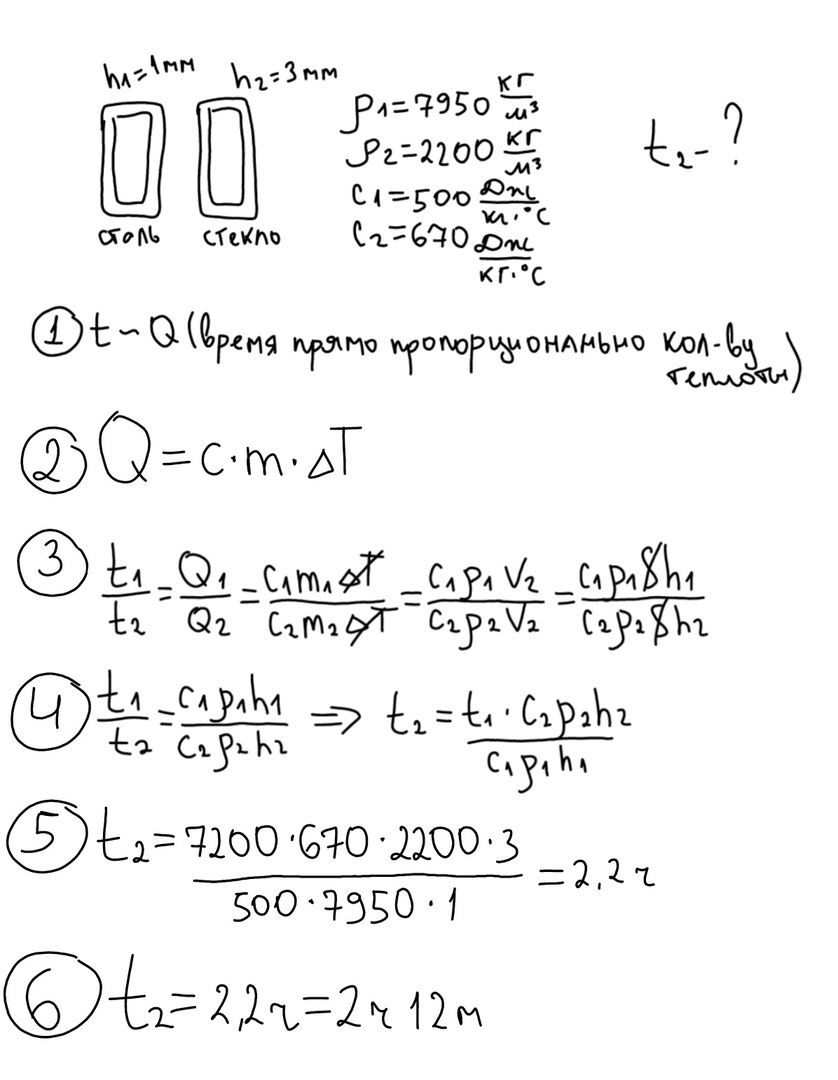 h₁=1мм h₂=3мм
сталь стекло
ρ₁=7950 кг/м³
ρ₂=2200 кг/м³
C₁=500 Дж/кг·°C
C₂=670 Дж/кг·°C
t₂-?
① t~Q (время прямо пропорционально кол-ву
теплоты)
② Q=c·m·ΔT
③ t₁/t₂=Q₁/Q₂=C₁m₁ΔT/C₂m₂ΔT=C₁ρ₁V₂/C₂ρ₂V₂=C₁ρ₁Sh₁/C₂ρ₂Sh₂
④ t₁/t₂=C₁ρ₁h₁/C₂ρ₂h₂ => t₂=t₁·C₂ρ₂h₂/C₁ρ₁h₁
⑤ t₂=7200·670·2200·3/500·7950·1=2,2ч
⑥ t₂=2,2ч=2ч 12м